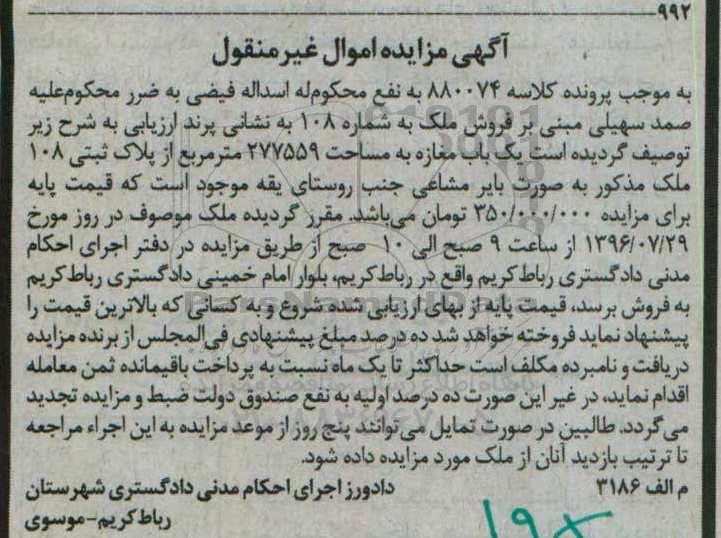 ۹۹۲
آگهی مزایده اموال غیرمنقول
به موجب پرونده کلاسه ۸۸۰۰۷۴ به نفع محکوم‌له اسداله فیضی به ضرر محکوم‌علیه
صمد سهیلی مبنی بر فروش ملک به شماره ۱۰۸ به نشانی پرند ارزیابی به شرح زیر
توصیف گردیده است یک باب مغازه به مساحت ۲۷۷۵۵۹ مترمربع از پلاک ثبتی ۱۰۸
ملک مذکور به صورت بایر مشاعی جنب روستای یقه موجود است که قیمت پایه
برای مزایده ۳۵۰/۰۰۰/۰۰۰ تومان می‌باشد. مقرر گردیده ملک موصوف در روز مورخ
۱۳۹۶/۰۷/۲۹ از ساعت ۹ صبح الی ۱۰ صبح از طریق مزایده در دفتر اجرای احکام
مدنی دادگستری رباط‌کریم واقع در رباط‌کریم، بلوار امام خمینی دادگستری رباط‌کریم
به فروش برسد، قیمت پایه از بهای ارزیابی شده شروع و به کسانی که بالاترین قیمت را
پیشنهاد نماید فروخته خواهد شد ده درصد مبلغ پیشنهادی فی‌المجلس از برنده مزایده
دریافت و نامبرده مکلف است حداکثر تا یک ماه نسبت به پرداخت باقیمانده ثمن معامله
اقدام نماید، در غیر این صورت ده درصد اولیه به نفع صندوق دولت ضبط و مزایده تجدید
می‌گردد. طالبین در صورت تمایل می‌توانند پنج روز از موعد مزایده به این اجراء مراجعه
تا ترتیب بازدید آنان از ملک مورد مزایده داده شود.
م الف ۳۱۸۶ دادورز اجرای احکام مدنی دادگستری شهرستان
رباط‌کریم-موسوی
ParsNamadData